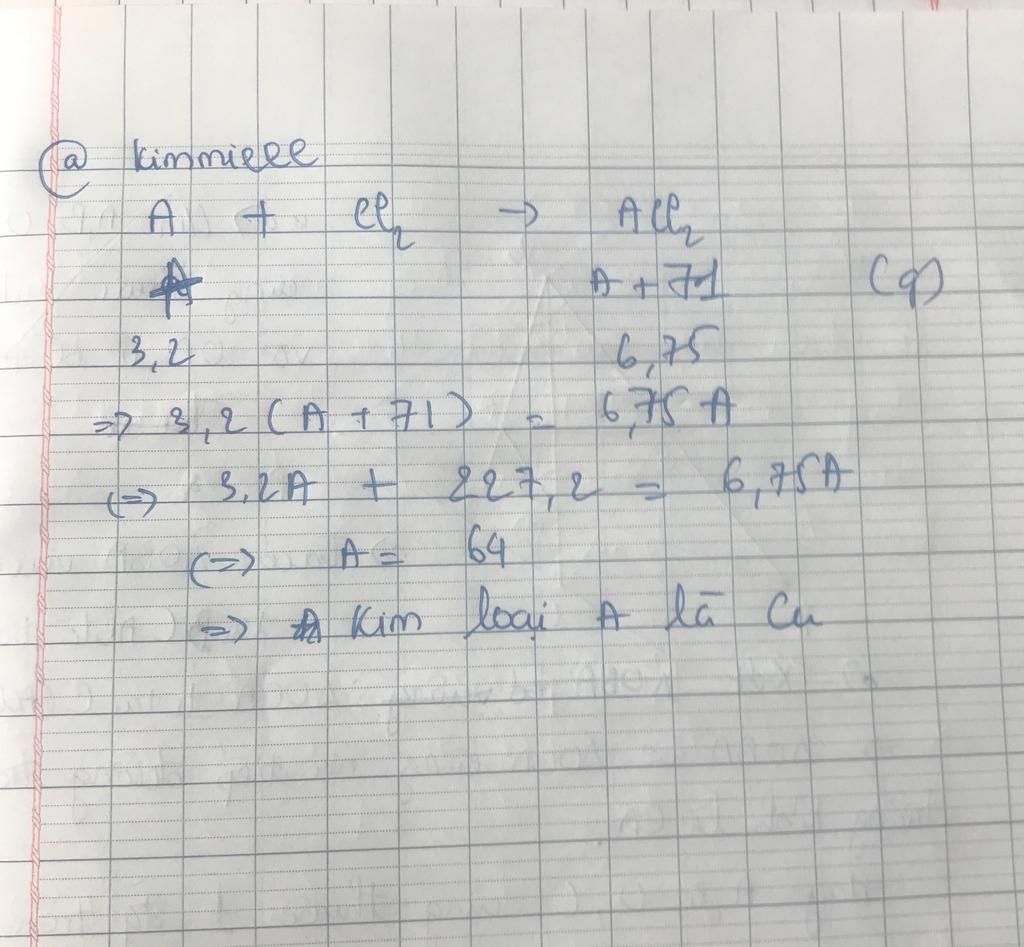 @ kimmieee
A + Cl₂ → ACl₂
A A + 71 (g)
3,2 6,75
=> 3,2 (A + 71) = 6,75 A
(=>) 3,2A + 227,2 = 6,75A
(=>) A = 64
=> Kim loại A là Cu